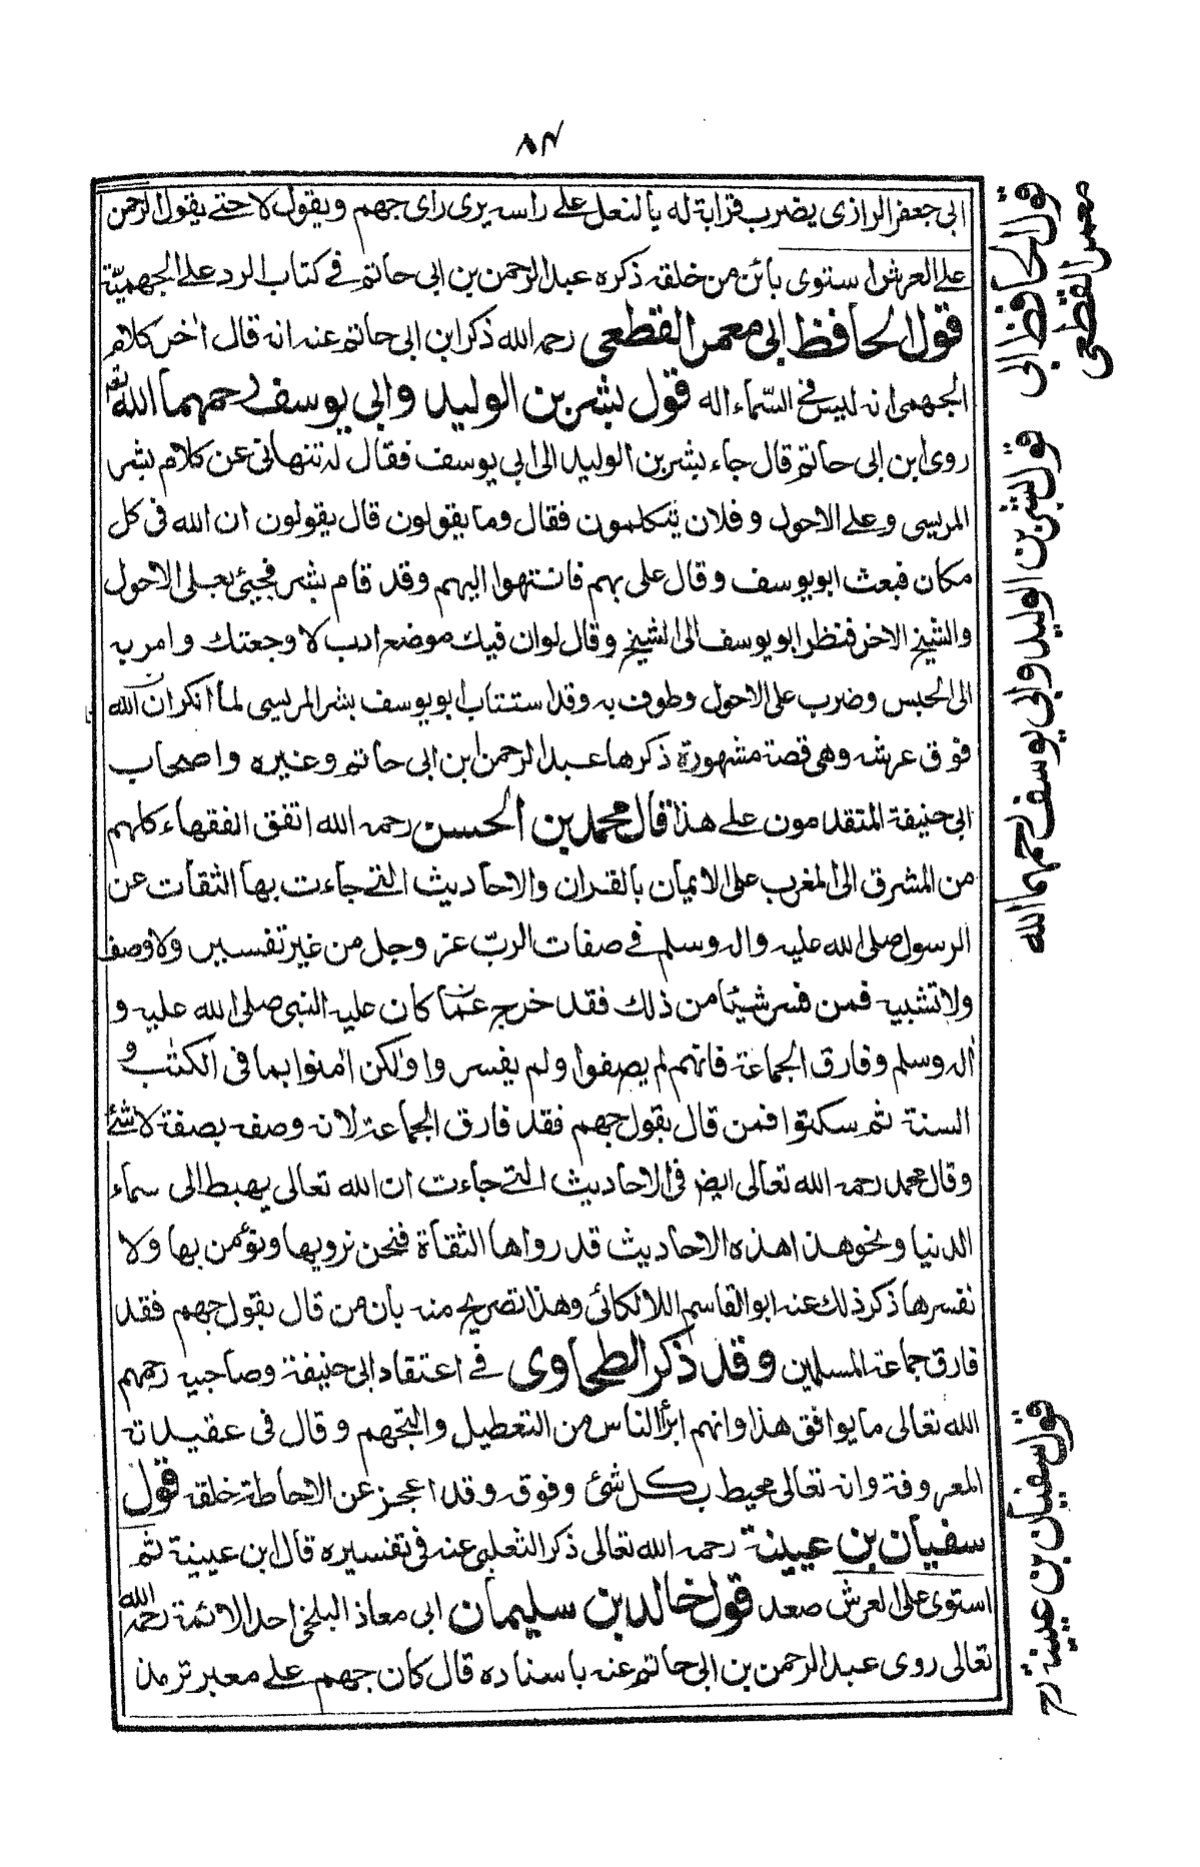 ٨٣
ابى جعفر الرازى يضرب قرابة له بالنعل على راسه يرى راى جهم ويقول لا حتے يقول الرحمن
على العرش استوى بائن من خلقه ذكره عبد الرحمن بن ابى حاتم فے كتاب الرد على الجهميّة
قول الحافظ ابى معمر القطعى رحمه الله ذكر ابن ابى حاتم عنه انه قال اٰخر كلام
الجهمى انه ليس فے السّماء اله قول بشر بن الوليد وابى يوسف رحمهما الله تعالى
روى ابن ابى حاتم قال جاء بشر بن الوليد الى ابى يوسف فقال له تنهانى عن كلام بشر
المريسى وعلى الاحول وفلان يتكلمون فقال وما يقولون قال يقولون ان الله فى كل
مكان فبعث ابو يوسف وقال على بهم فانتهوا اليهم وقد قام بشر فجيئ بعلى الاحول
والشيخ الاخر فنظر ابو يوسف الى الشيخ وقال لو ان فيك موضع ادب لاوجعتك وامر به
الى الحبس وضرب على الاحول وطوف به وقد استتاب ابو يوسف بشر المريسى لما انكر ان الله
فوق عرشه وهى قصة مشهورة ذكرها عبد الرحمن ابن ابى حاتم وغيره واصحاب
ابى حنيفة المتقدمون على هذا قال محمد بن الحسن رحمه الله اتفق الفقهاء كلهم
من المشرق الى المغرب على الايمان بالقران والاحاديث التے جاءت بها الثقات عن
الرسول صلى الله عليه واله وسلم فے صفات الربّ عز وجل من غير تفسير ولا وصف
ولا تشبيه فمن فسر شيئا من ذلك فقد خرج عمّا كان عليه النبى صلى الله عليه و
اٰله وسلم وفارق الجماعة فانهم لم يصفوا ولم يفسروا ولٰكن اٰمنوا بما فى الكتٰب و
السنة ثم سكتوا فمن قال بقول جهم فقد فارق الجماعة لانه وصفه بصفة لا شئ
وقال محمد رحمه الله تعالى ايضا فى الاحاديث التے جاءت ان الله تعالى يهبط الى سماء
الدنيا ونحو هذا هذه الاحاديث قد رواها الثقاة فنحن نرويها ونؤمن بها ولا
نفسرها ذكر ذلك عنه ابو القاسم اللالكائى وهذا تصريح منه بان من قال بقول جهم فقد
فارق جماعة المسلمين وقد ذكر الطحاوى فے اعتقاد ابى حنيفة وصاحبيه رحمهم
الله تعالى ما يوافق هذا وانهم ابرأ الناس من التعطيل والتجهم وقال فى عقيدته
المعروفة وانه تعالى محيط بكل شئ وفوقه وقد اعجز عن الاحاطة خلقه قول
سفيان بن عيينة رحمه الله تعالى ذكر الثعلبى عنه فى تفسيره قال ابن عيينة ثم
استوى على العرش صعد قول خالد بن سليمان ابى معاذ البلخى احد الائمة رحمه الله
تعالى روى عبد الرحمن بن ابى حاتم عنه باسناده قال كان جهم على معبر ترمذ
قول الحافظ ابى
معمر القطعى
قول بشر بن الوليد وابى يوسف رحمهما الله
قول سفيان بن عيينة رح